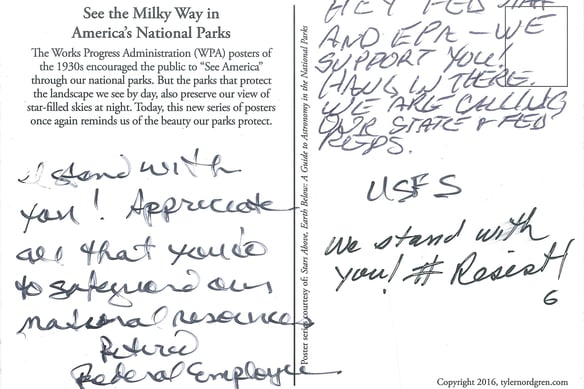 See the Milky Way in
America's National Parks
The Works Progress Administration (WPA) posters of
the 1930s encouraged the public to "See America"
through our national parks. But the parks that protect
the landscape we see by day, also preserve our view of
star-filled skies at night. Today, this new series of posters
once again reminds us of the beauty our parks protect.
I stand with
you! Appreciate
all that you do
to safeguard our
national resources
Retired
Federal Employee.
Poster series courtesy of: Stars Above, Earth Below: A Guide to Astronomy in the National Parks
HEY FED STAFF
AND EPA - WE
SUPPORT YOU!
HANG IN THERE.
WE ARE CALLING
OUR STATE & FED
REPS.
USFS
We stand with
you! # Resist!
6
Copyright 2016, tylernordgren.com